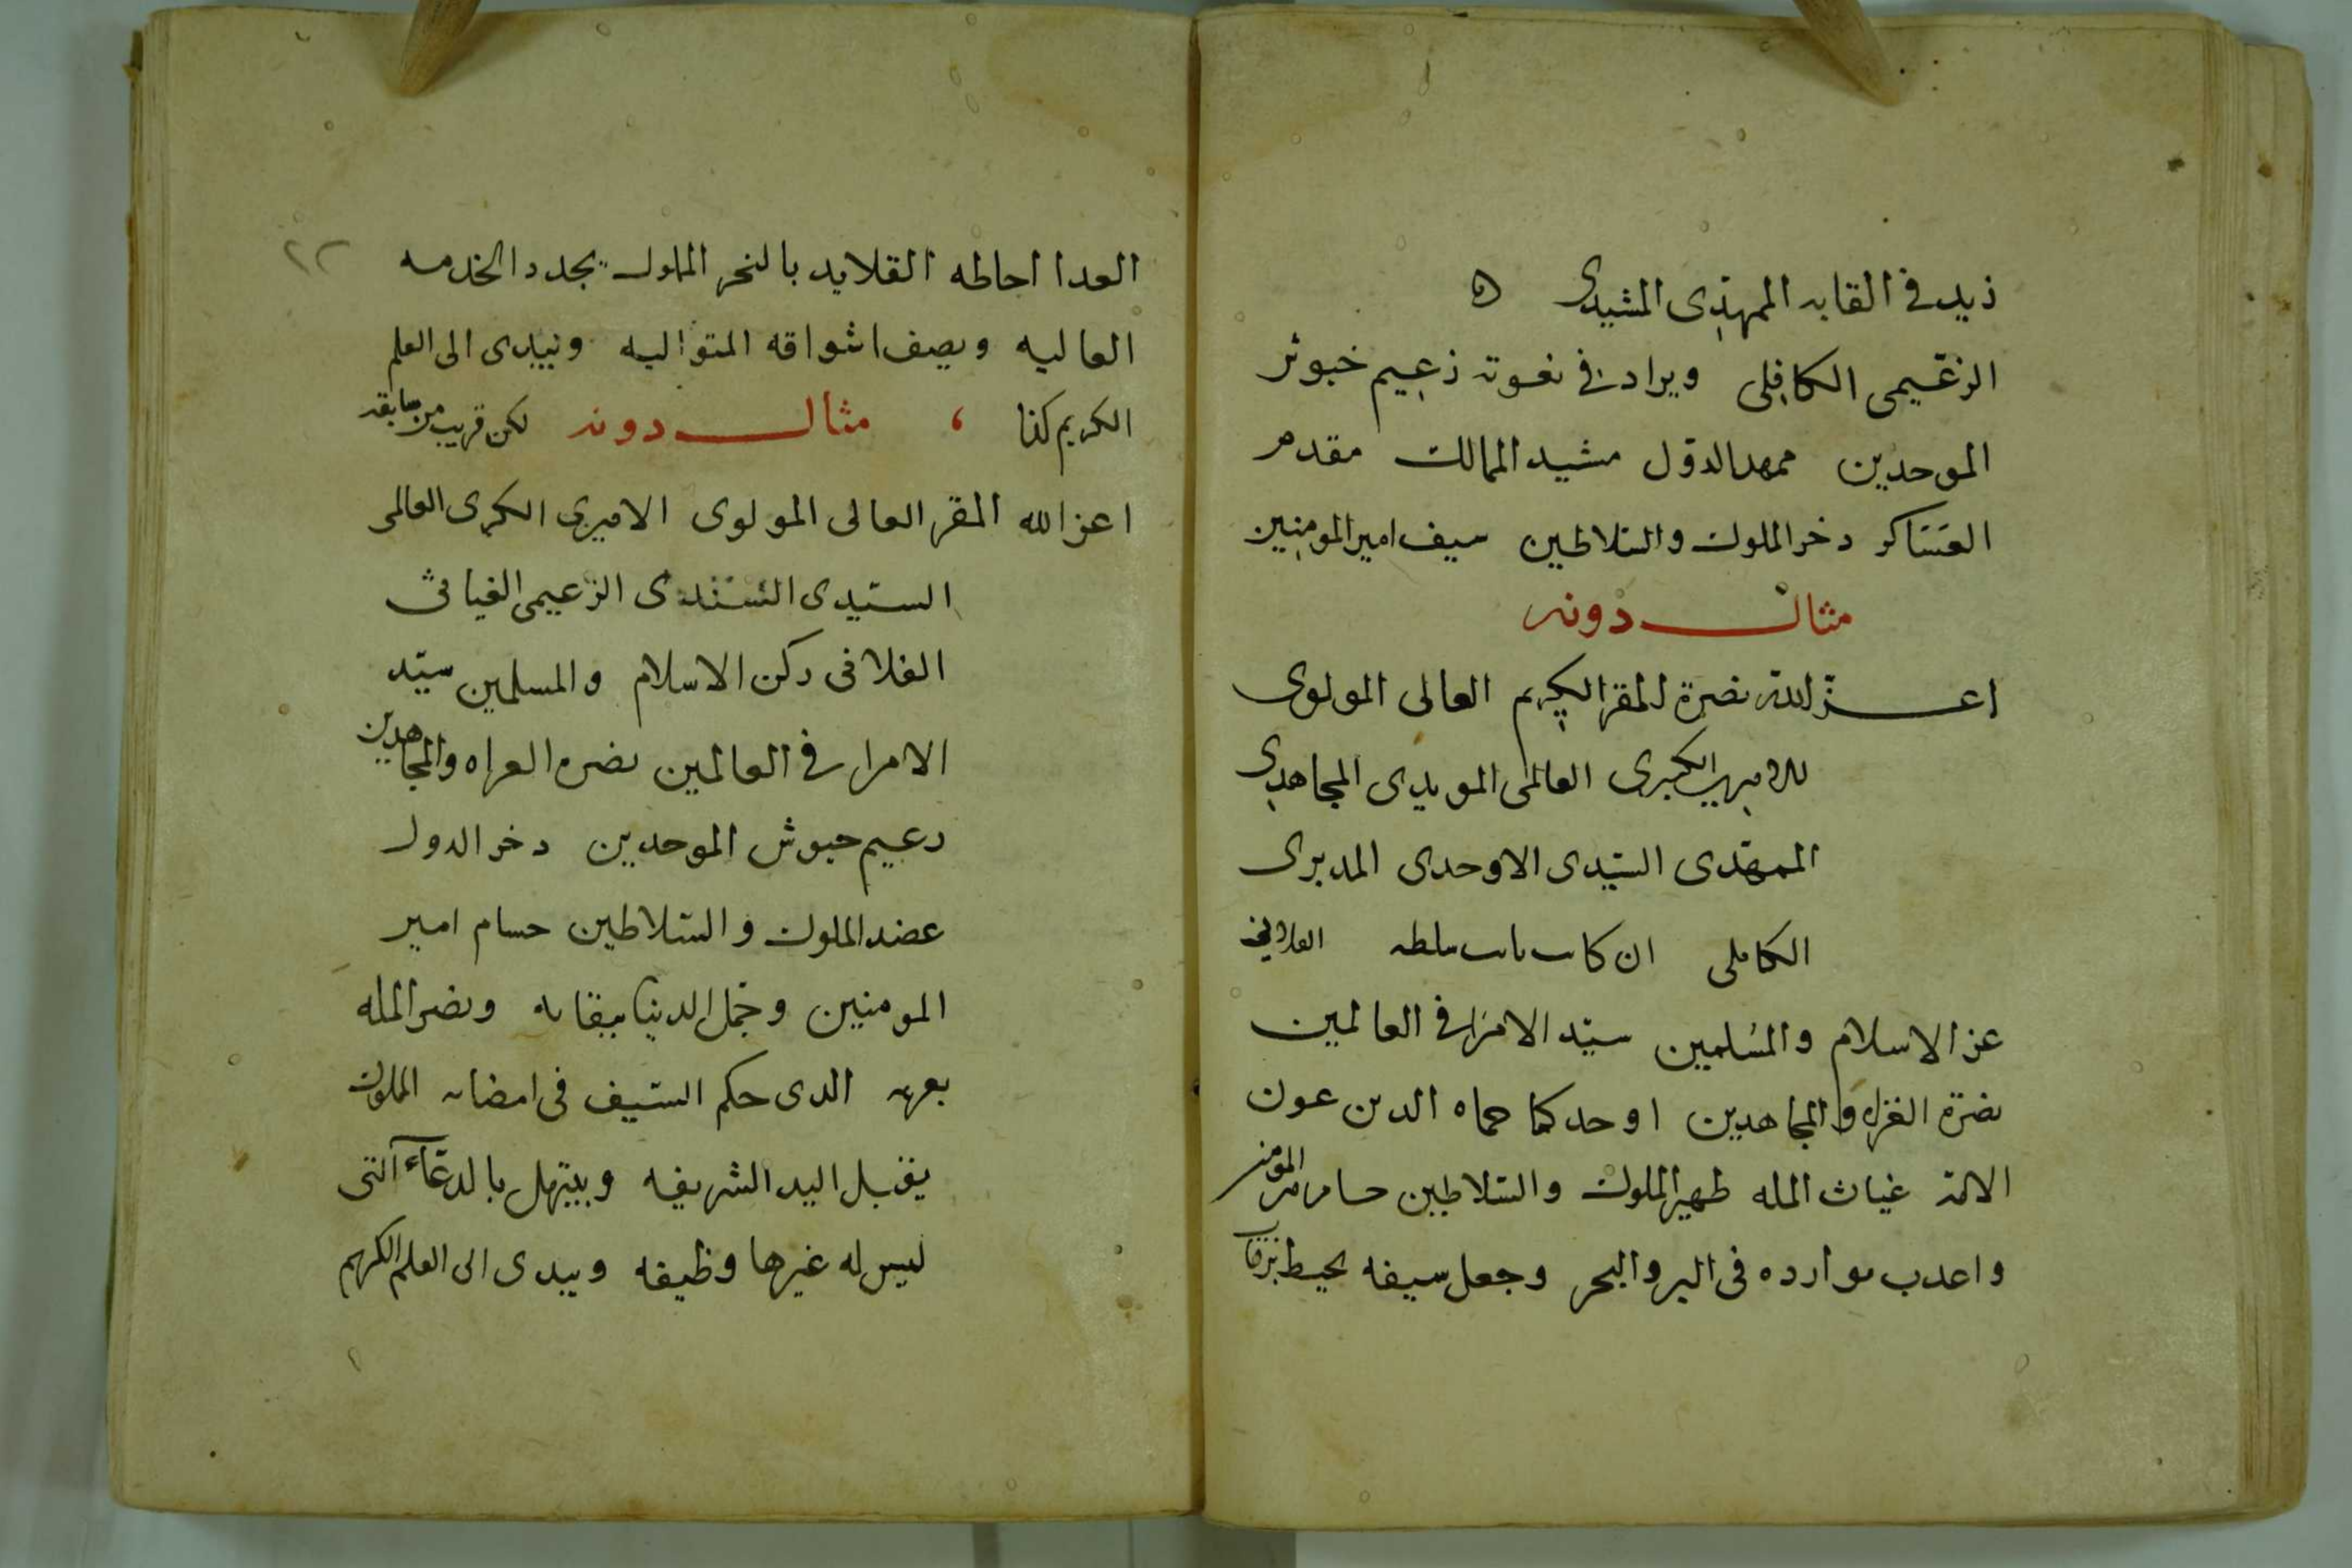 زيد في القابه الممهدي المشيدي ه
الزعيمي الكافلي ويزاد في نعوته زعيم جيوش
الموحدين ممهد الدول مشيد الممالك مقدم
العساكر ذخر الملوك والسلاطين سيف امير المومنين
مثال دونه
اعز الله نصرة المقر الكريم العالي المولوي
الاميري الكبيري العالمي المويدي المجاهدي
الممهدي السيدي الاوحدي المدبري
الكاملي ان كان نايب سلطنه الفلاني
عز الاسلام والمسلمين سيد الامرا في العالمين
نصرة الغزاه والمجاهدين اوحد كماه حماه الدين عون
الامة غياث المله ظهير الملوك والسلاطين حسام امير المومنين
واعدب موارده في البر والبحر وجعل سيفه يحيط برقاب
العدا احاطه القلايد بالنحر المملوك يجدد الخدمه
العاليه ويصف اشواقه المتواليه ويبدي الى العلم
الكريم كذا ، مثال دونه لكن قريب من سابقه
اعز الله المقر العالي المولوي الاميري الكبيري العالمي
السيدي السندي الزعيمي الغياثي
الفلاني ركن الاسلام والمسلمين سيد
الامرا في العالمين نصره الغزاه والمجاهدين
زعيم جيوش الموحدين ذخر الدول
عضد الملوك والسلاطين حسام امير
المومنين وجمل الدنيا ببقايه ونصر المله
بعزمه الدي حكم السيف في امضايه المملوك
يقبل اليد الشريفه ويبتهل بالدعاء التي
ليس له غيرها وظيفه ويبدي الى العلم الكريم
٢٢